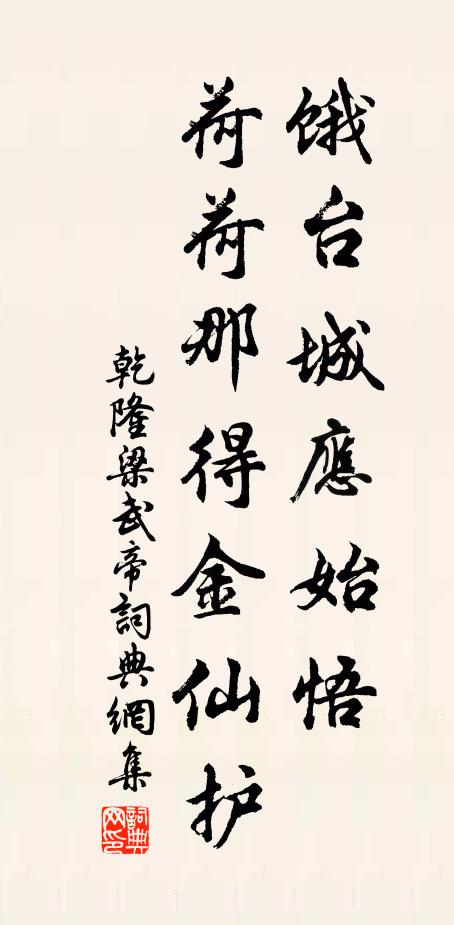 饿台城應始悟
荷荷那得金仙护
乾隆梁武帝詞典網集
詞典網印